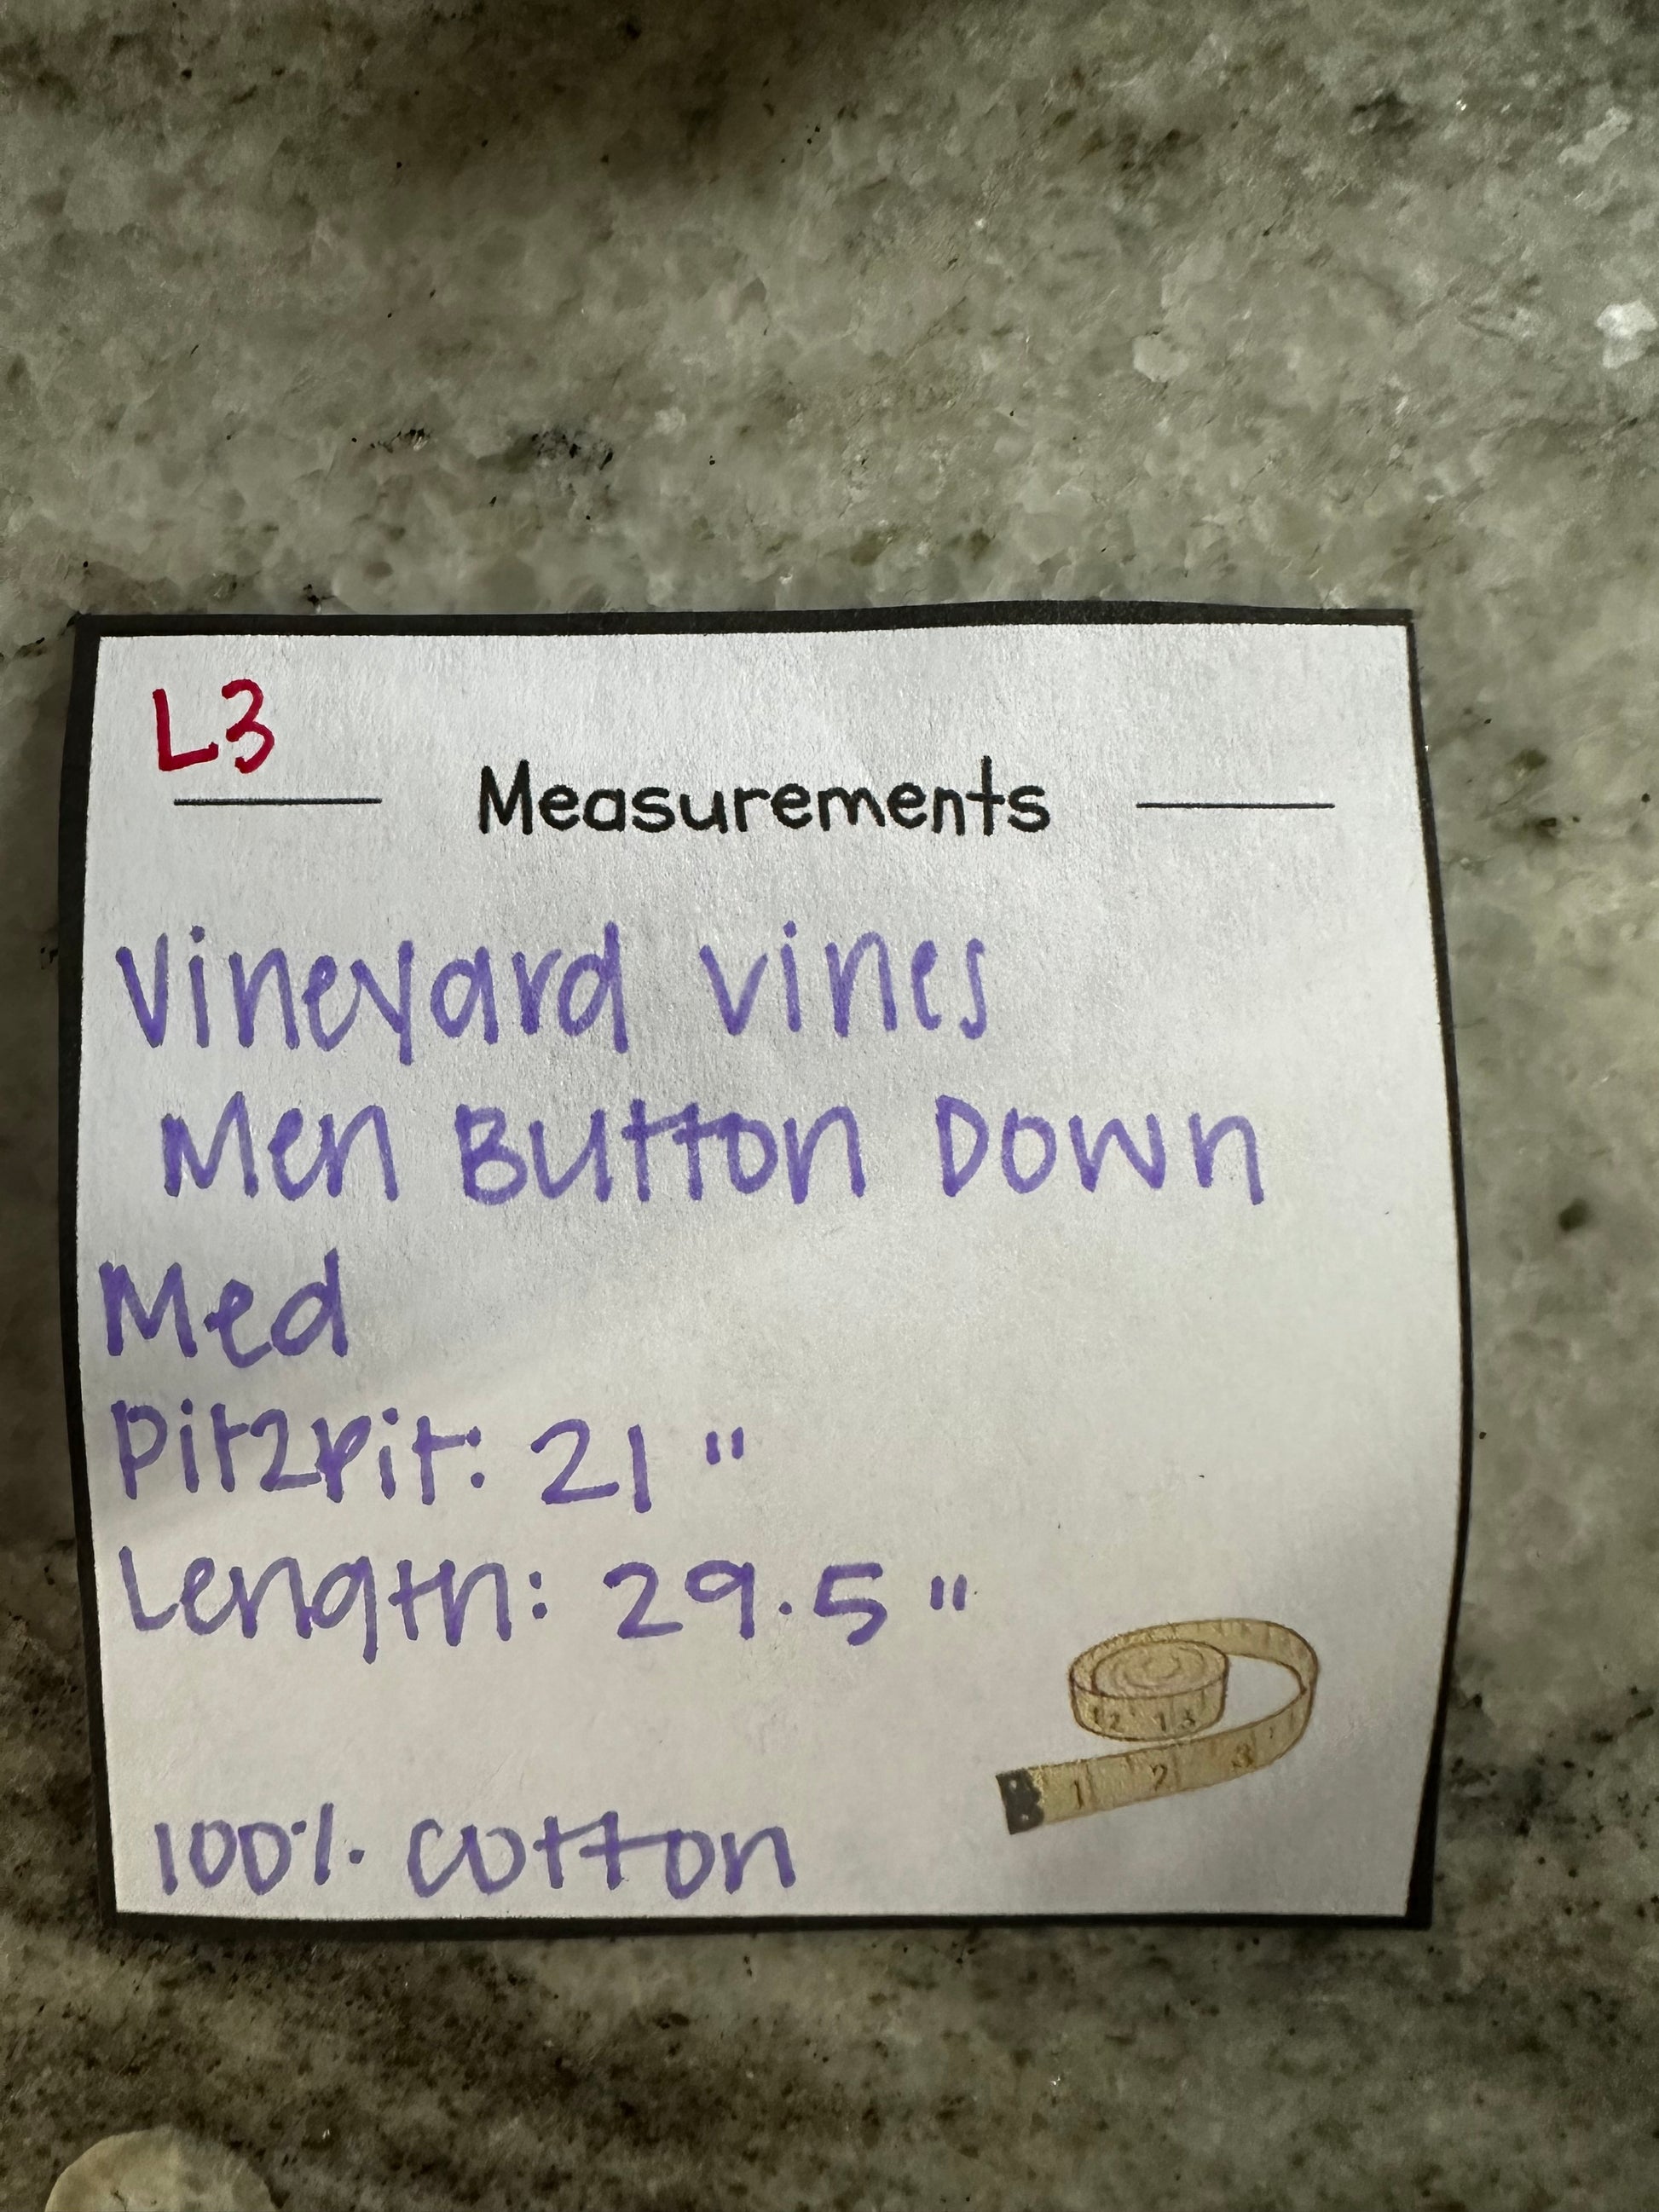 L3
Measurements
Vineyard vines
Men Button Down
Med
Pit2pit: 21"
Length: 29.5"
12 13
1 2 3
100% cotton